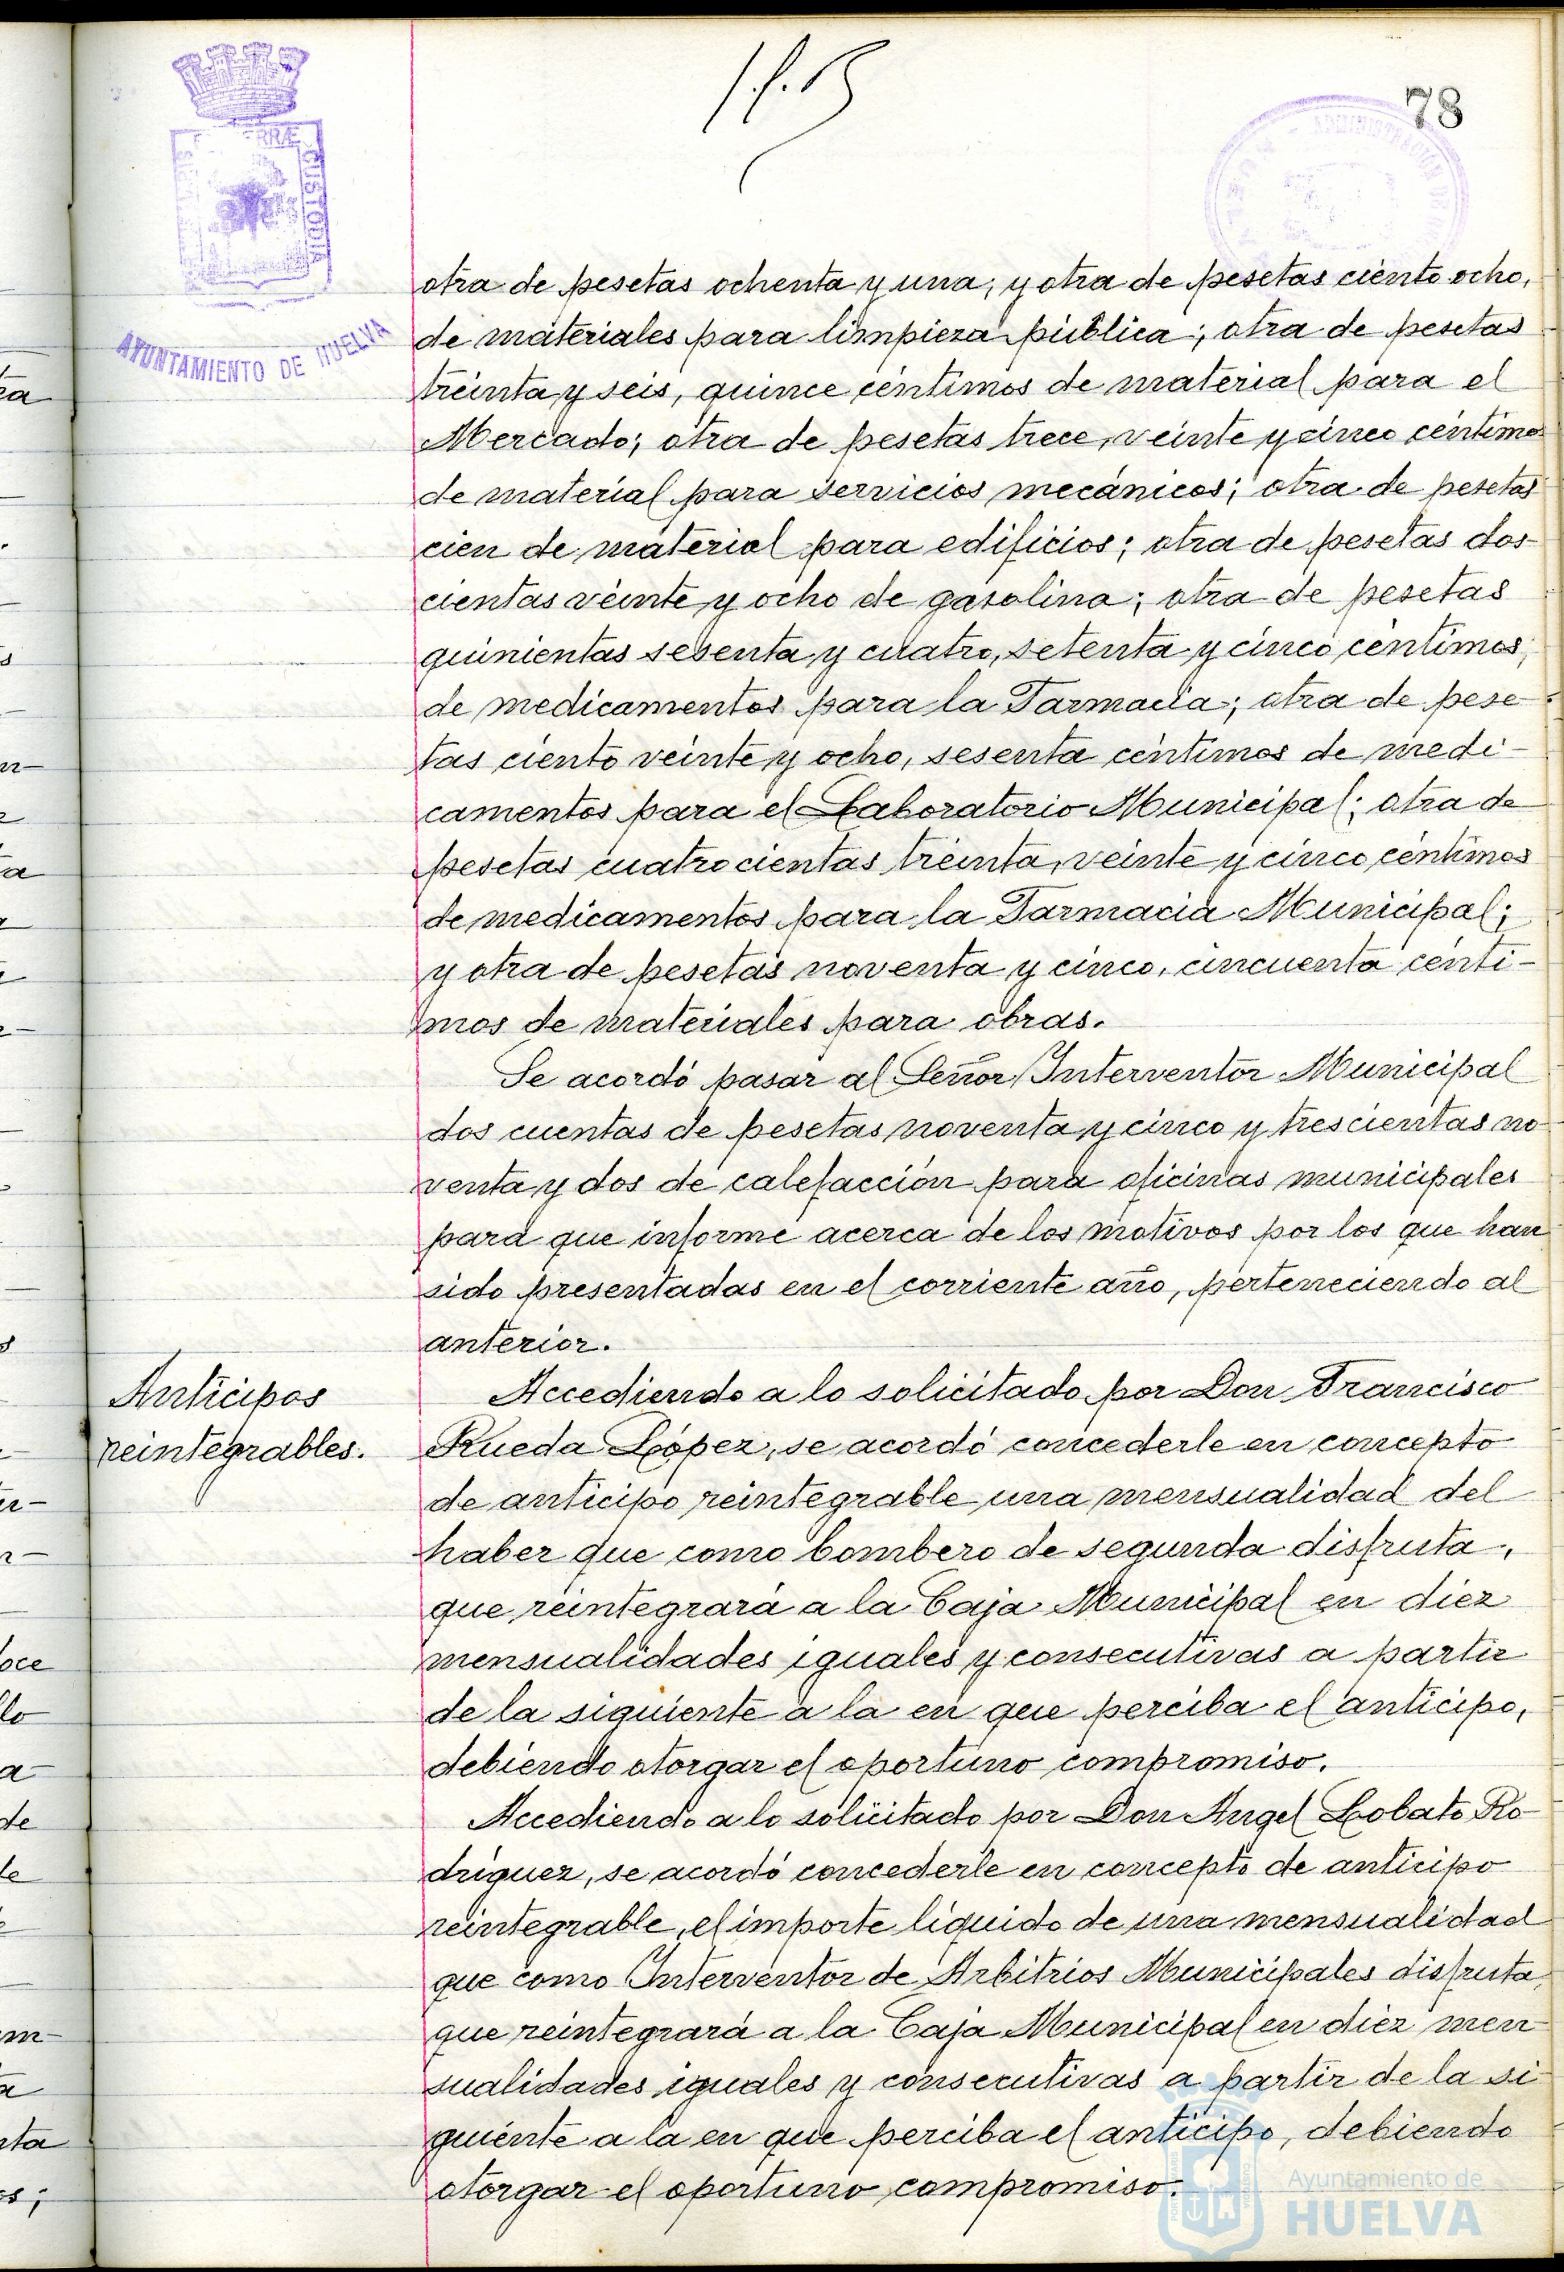 78
TERRÆ
CUSTODIA
AYUNTAMIENTO DE HUELVA
otra de pesetas ochenta y una; y otra de pesetas ciento ocho,
de materiales para limpieza pública; otra de pesetas
treinta y seis, quince céntimos de material para el
Mercado; otra de pesetas trece, veinte y cinco céntimos
de material para servicios mecánicos; otra de pesetas
cien de material para edificios; otra de pesetas dos-
cientas veinte y ocho de gasolina; otra de pesetas
quinientas sesenta y cuatro, setenta y cinco céntimos,
de medicamentos para la Farmacia; otra de pese-
tas ciento veinte y ocho, sesenta céntimos de medi-
camentos para el Laboratorio Municipal; otra de
pesetas cuatrocientas treinta, veinte y cinco céntimos
de medicamentos para la Farmacia Municipal;
y otra de pesetas noventa y cinco, cincuenta cénti-
mos de materiales para obras.
Se acordó pasar al Señor Interventor Municipal
dos cuentas de pesetas noventa y cinco y trescientas no-
venta y dos de calefacción para oficinas municipales
para que informe acerca de los motivos por los que han
sido presentadas en el corriente año, perteneciendo al
anterior.
Anticipos
reintegrables.
Accediendo a lo solicitado por Don Francisco
Rueda López, se acordó concederle en concepto
de anticipo reintegrable una mensualidad del
haber que como bombero de segunda disfruta,
que reintegrará a la Caja Municipal en diez
mensualidades iguales y consecutivas a partir
de la siguiente a la en que perciba el anticipo,
debiendo otorgar el oportuno compromiso.
Accediendo a lo solicitado por Don Angel Lobato Ro-
driguez, se acordó concederle en concepto de anticipo
reintegrable, el importe líquido de una mensualidad
que como Interventor de Arbitrios Municipales disfruta,
que reintegrará a la Caja Municipal en diez men-
sualidades iguales y consecutivas a partir de la si-
guiente a la en que perciba el anticipo, debiendo
otorgar el oportuno compromiso.
Ayuntamiento de
HUELVA